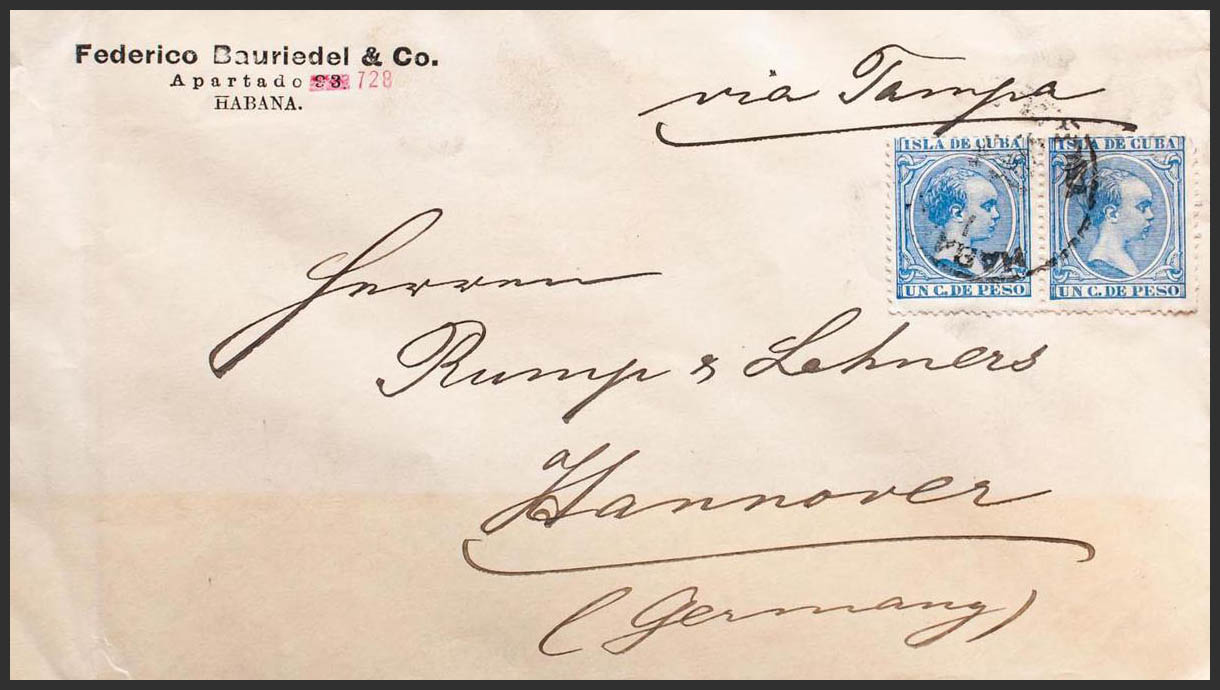 Federico Bauriedel & Co.
Apartado 93 728
HABANA.
via Tampa
ISLA DE CUBA ISLA DE CUBA
HABA
UN C. DE PESO UN C. DE PESO
Herren
Rump & Lehners
Hannover
(Germany)